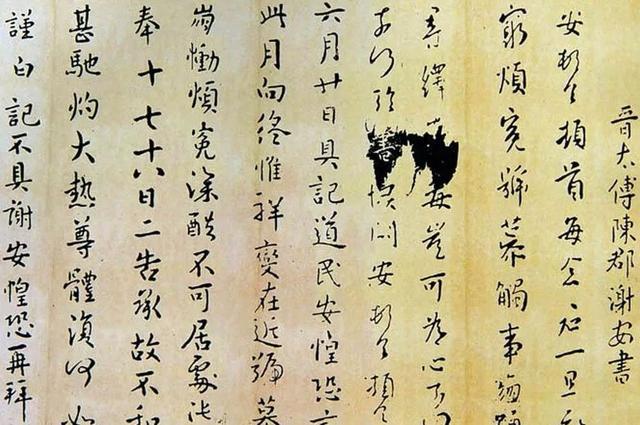 晉太傅陳郡謝安書
安頓首頓首每念君一旦知
窮煩冤號慕觸事崩踴
尋繹毒豈可為心奈何
奈何臨書損悶安頓首頓首
六月廿日具記道民安惶恐言
此月向終惟祥變在近號慕
崩慟煩冤深酷不可居處比
奉十七十八日二告承故不和
甚馳灼大熱尊體復何如
謹白記不具謝安惶恐再拜